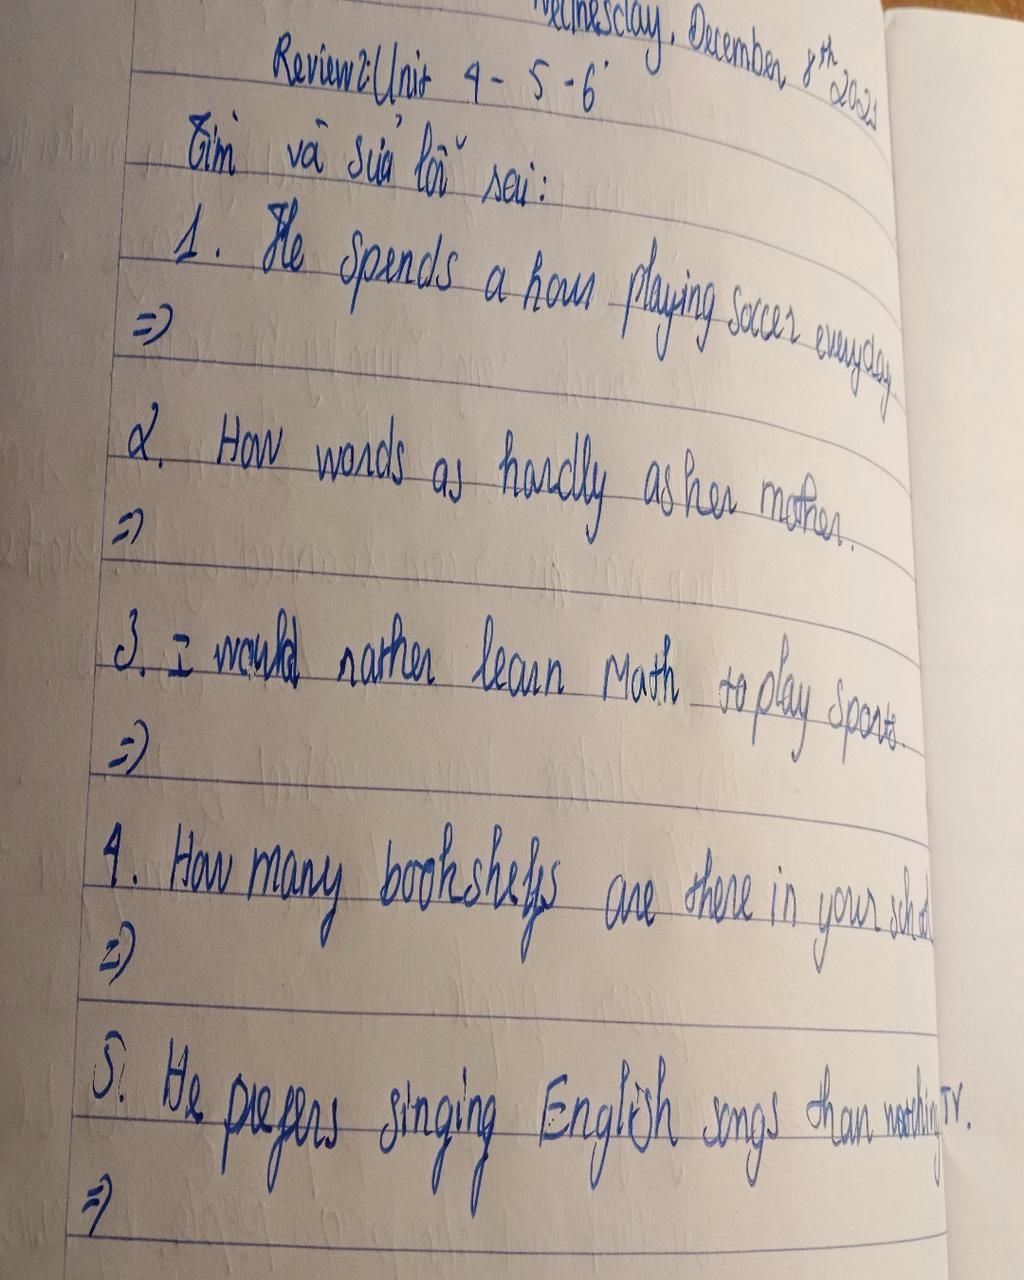 Wednesday, December 8th 2021
Review 2: Unit 4 - 5 - 6
Tìm và sửa lỗi sai:
1. He spends a hour playing soccer everyday
=>
2. How words as hardly as her mother.
=>
3. I would rather learn Math to play sports.
=>
4. How many bookshelfs are there in your school
=>
5. He prefers singing English songs than watching TV.
=>